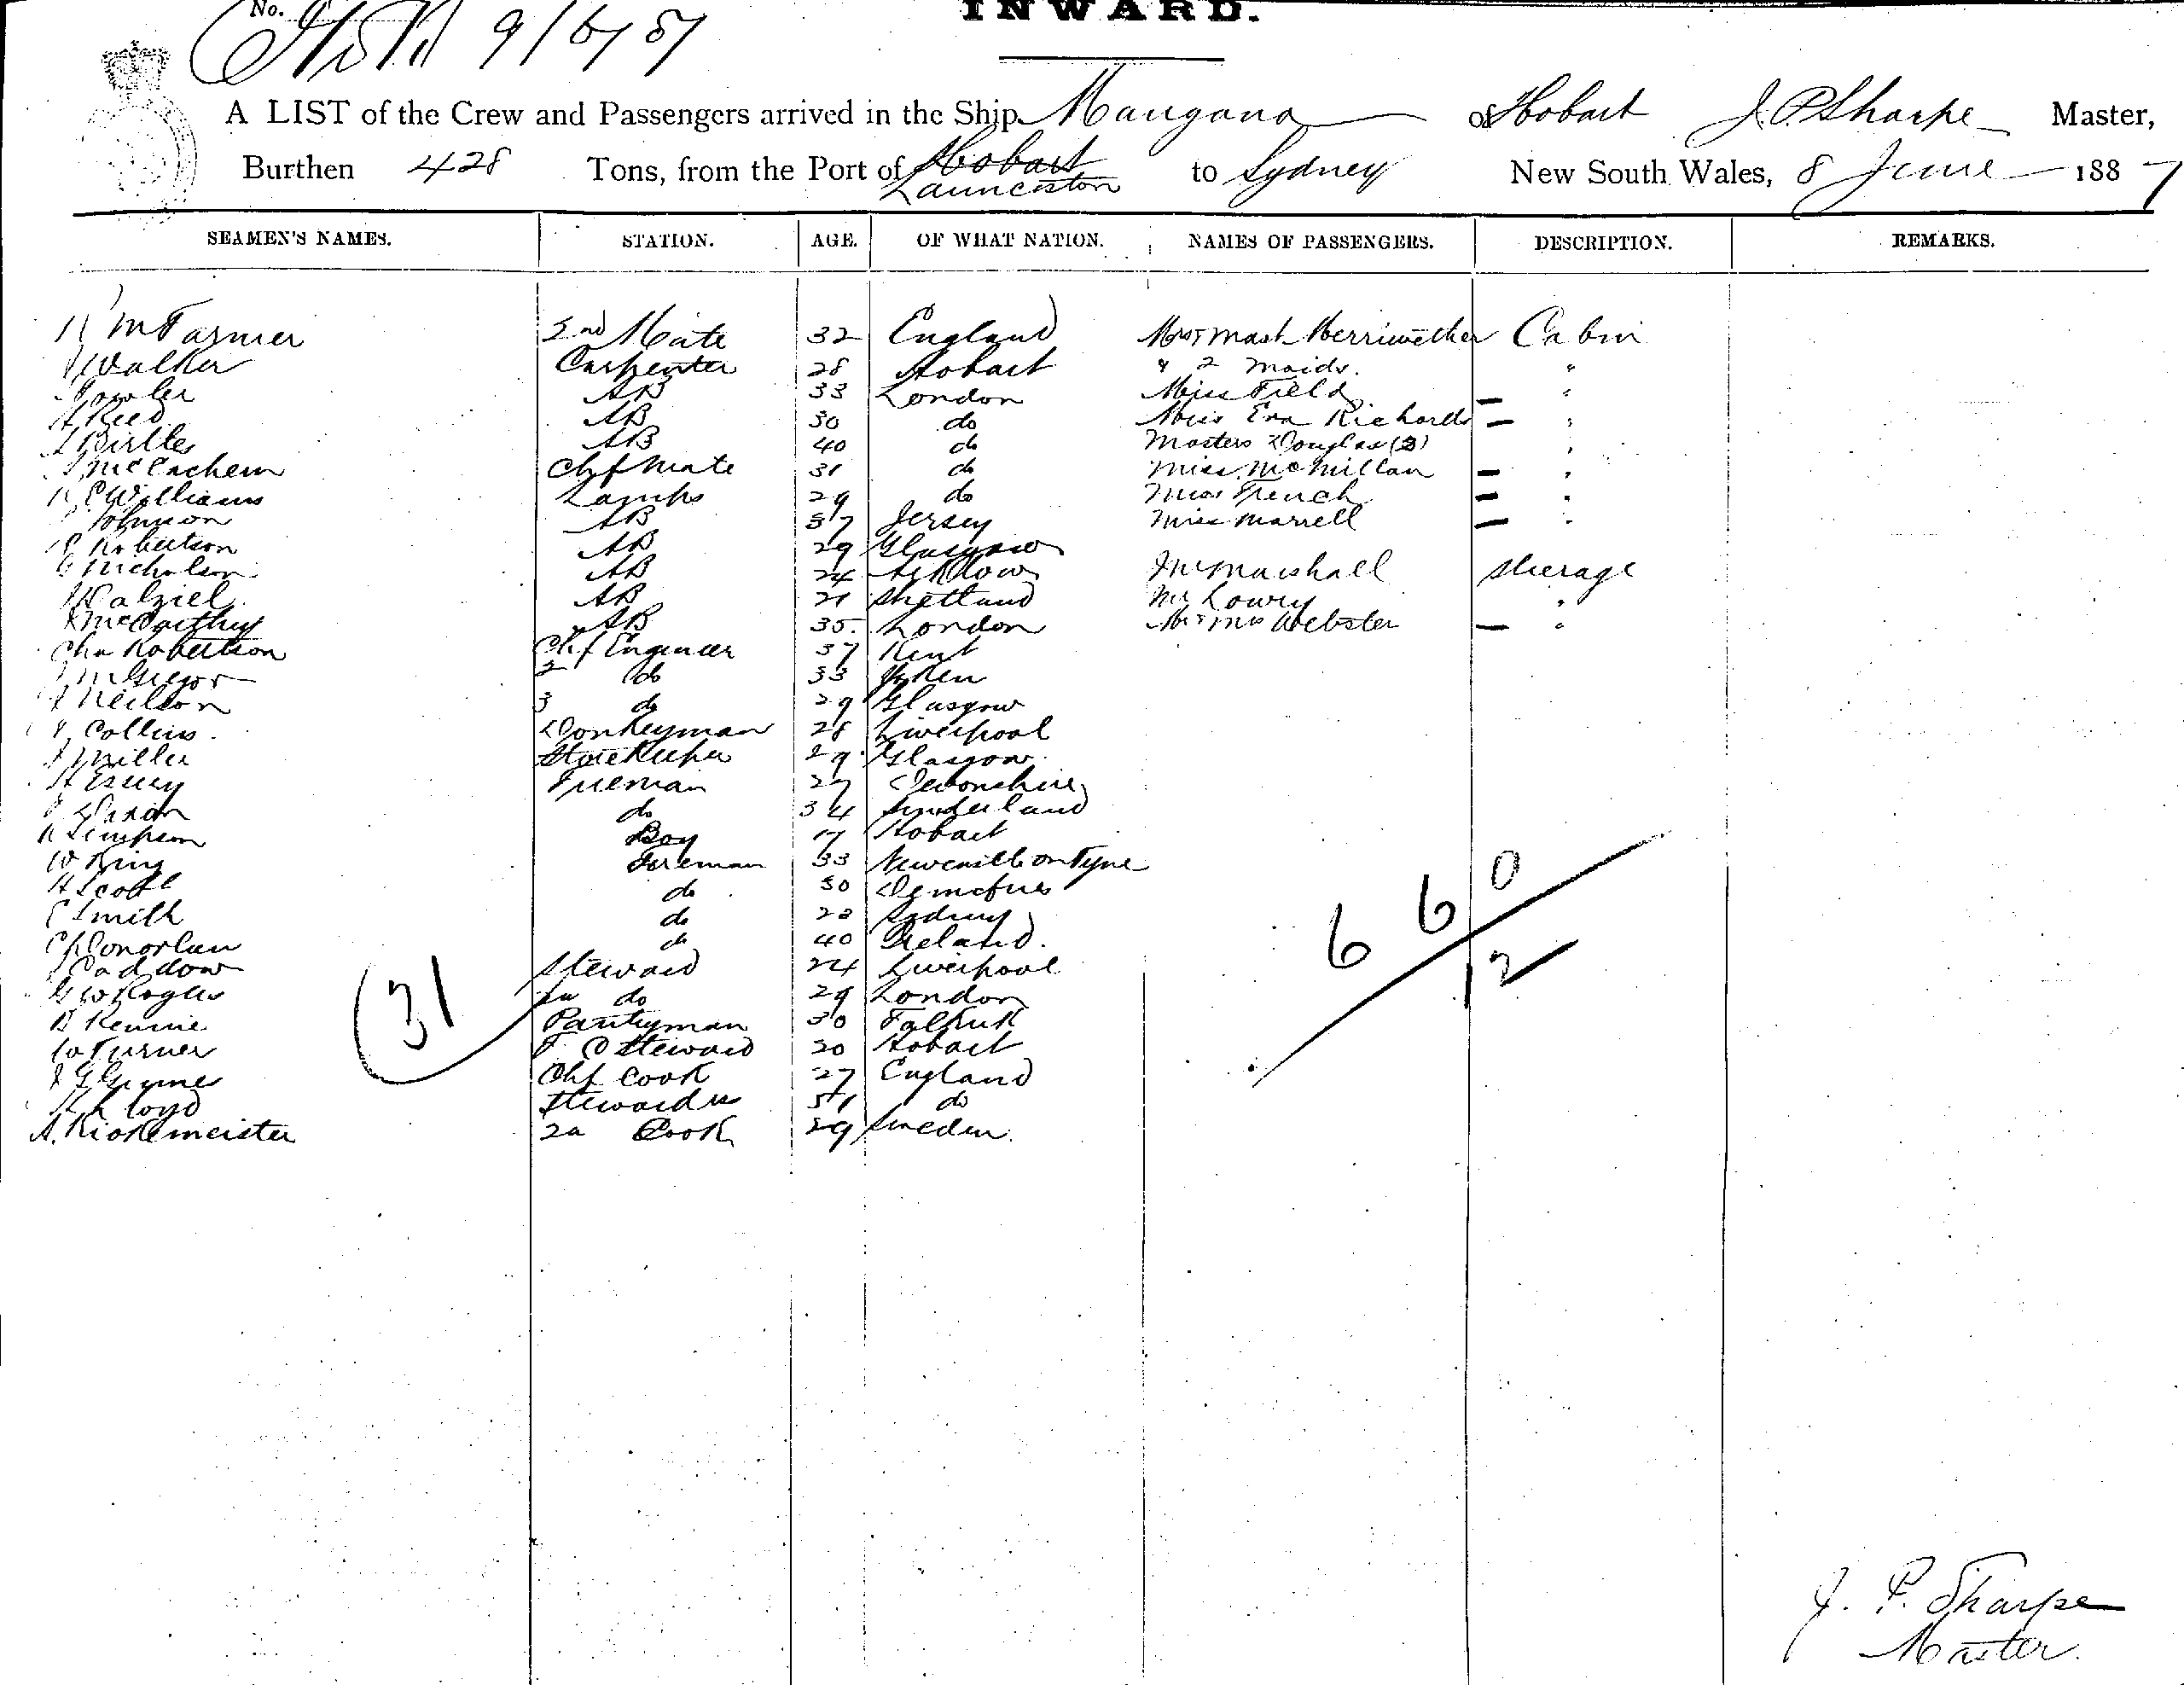 No.
INWARD.
A LIST of the Crew and Passengers arrived in the Ship Mangana of Hobart J. P. Sharpe Master,
Burthen 428 Tons, from the Port of Hobart Launceston to Sydney New South Wales, 8 June 1887
SEAMEN'S NAMES. STATION. AGE. OF WHAT NATION. NAMES OF PASSENGERS. DESCRIPTION. REMARKS.
2nd Mate 32 England Merriwether Cabin
Walker Carpenter 28 Hobart " 2 maids. "
Fowler AB 33 London Miss Field — "
H Reed AB 30 do Miss Eva Richards — "
Birtles AB 40 do Masters Douglas (2) "
McEachern Chf Mate 31 do Miss McMillan — "
Williams Lamps 29 do Miss French — "
Johnson AB 37 Jersey Miss — "
Robertson AB 29 Glasgow
Nicholson AB 24 Mr Marshall Steerage
Dalziel AB 21 Shetland Mr Lowry "
McCarthy AB 35 London Mr & Mrs Webster — "
Chs Robertson Chf Engineer 37 Kent
McGregor 2 do 33
Neilson 3 do 29 Glasgow
Collins Donkeyman 28 Liverpool
Miller Storekeeper 29 Glasgow
Fireman 27 Devonshire
do 34 Sunderland
Simpson Boy 17 Hobart
W King Fireman 33 Newcastle on Tyne
H Scott do 30
Smith do 22 Sydney
do 40 Ireland.
Steward 24 Liverpool
do 29 London
Rennie Pantryman 30 Falkirk
W Turner Steward 20 Hobart
Chf Cook 27 England
H Lloyd Stewardess 51 do
A. 2d Cook 29 Sweden.
31
6 6 0
12
J. P. Sharpe
Master.